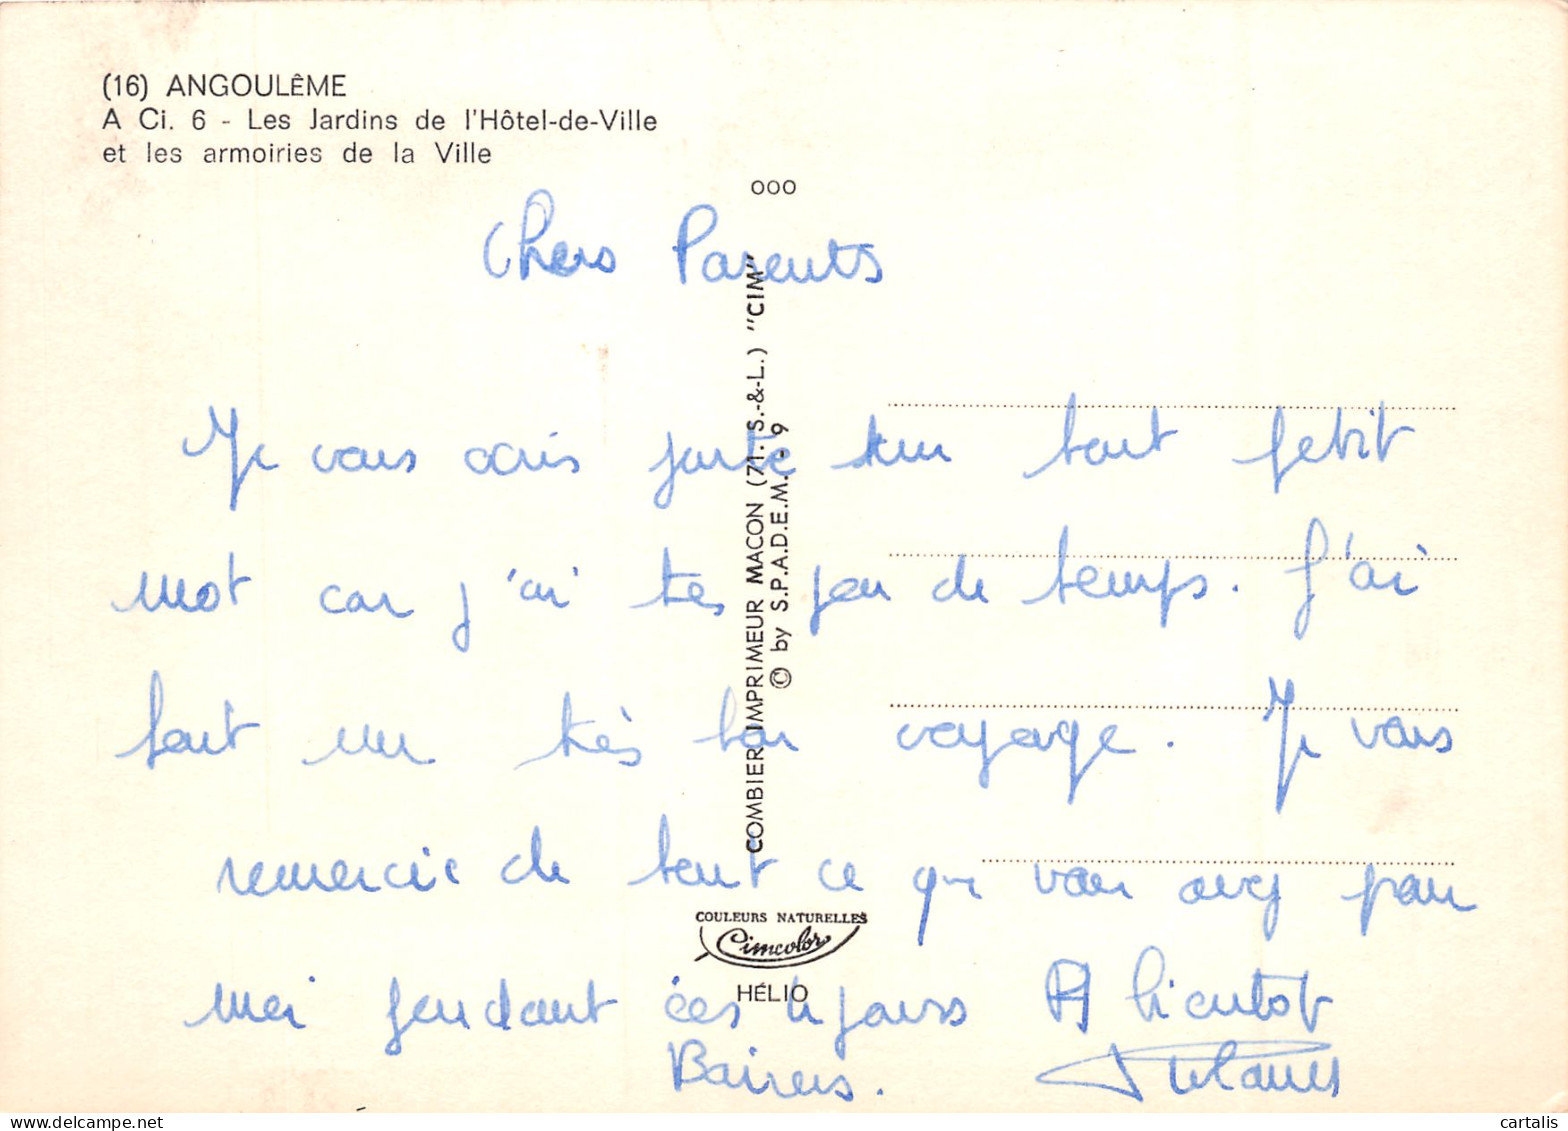 (16) ANGOULÊME
A Ci. 6 - Les Jardins de l'Hôtel-de-Ville
et les armoiries de la Ville
000
Chers Parents
Je vous écris juste un tout petit
mot car j'ai très peu de temps. J'ai
fait un très bon voyage. Je vous
remercie de tout ce que vous avez pour
moi pendant ces 4 jours A bientot
Baisers.
COMBIER IMPRIMEUR MACON (71. S.-&-L.) "CIM"
© by S.P.A.D.E.M. - 9
COULEURS NATURELLES
Cimcolor
HÉLIO
cartalis